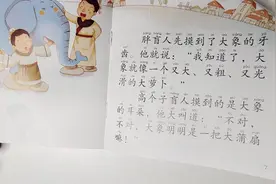 胖盲人先摸到了大象的牙
齿。他就说：“我知道了，大
象就像一个又大、又粗、又光
滑的大萝卜。”
高个子盲人摸到的是大象
的耳朵。他大叫道：“不对，
不对，大象明明是一把大蒲扇
嘛！”